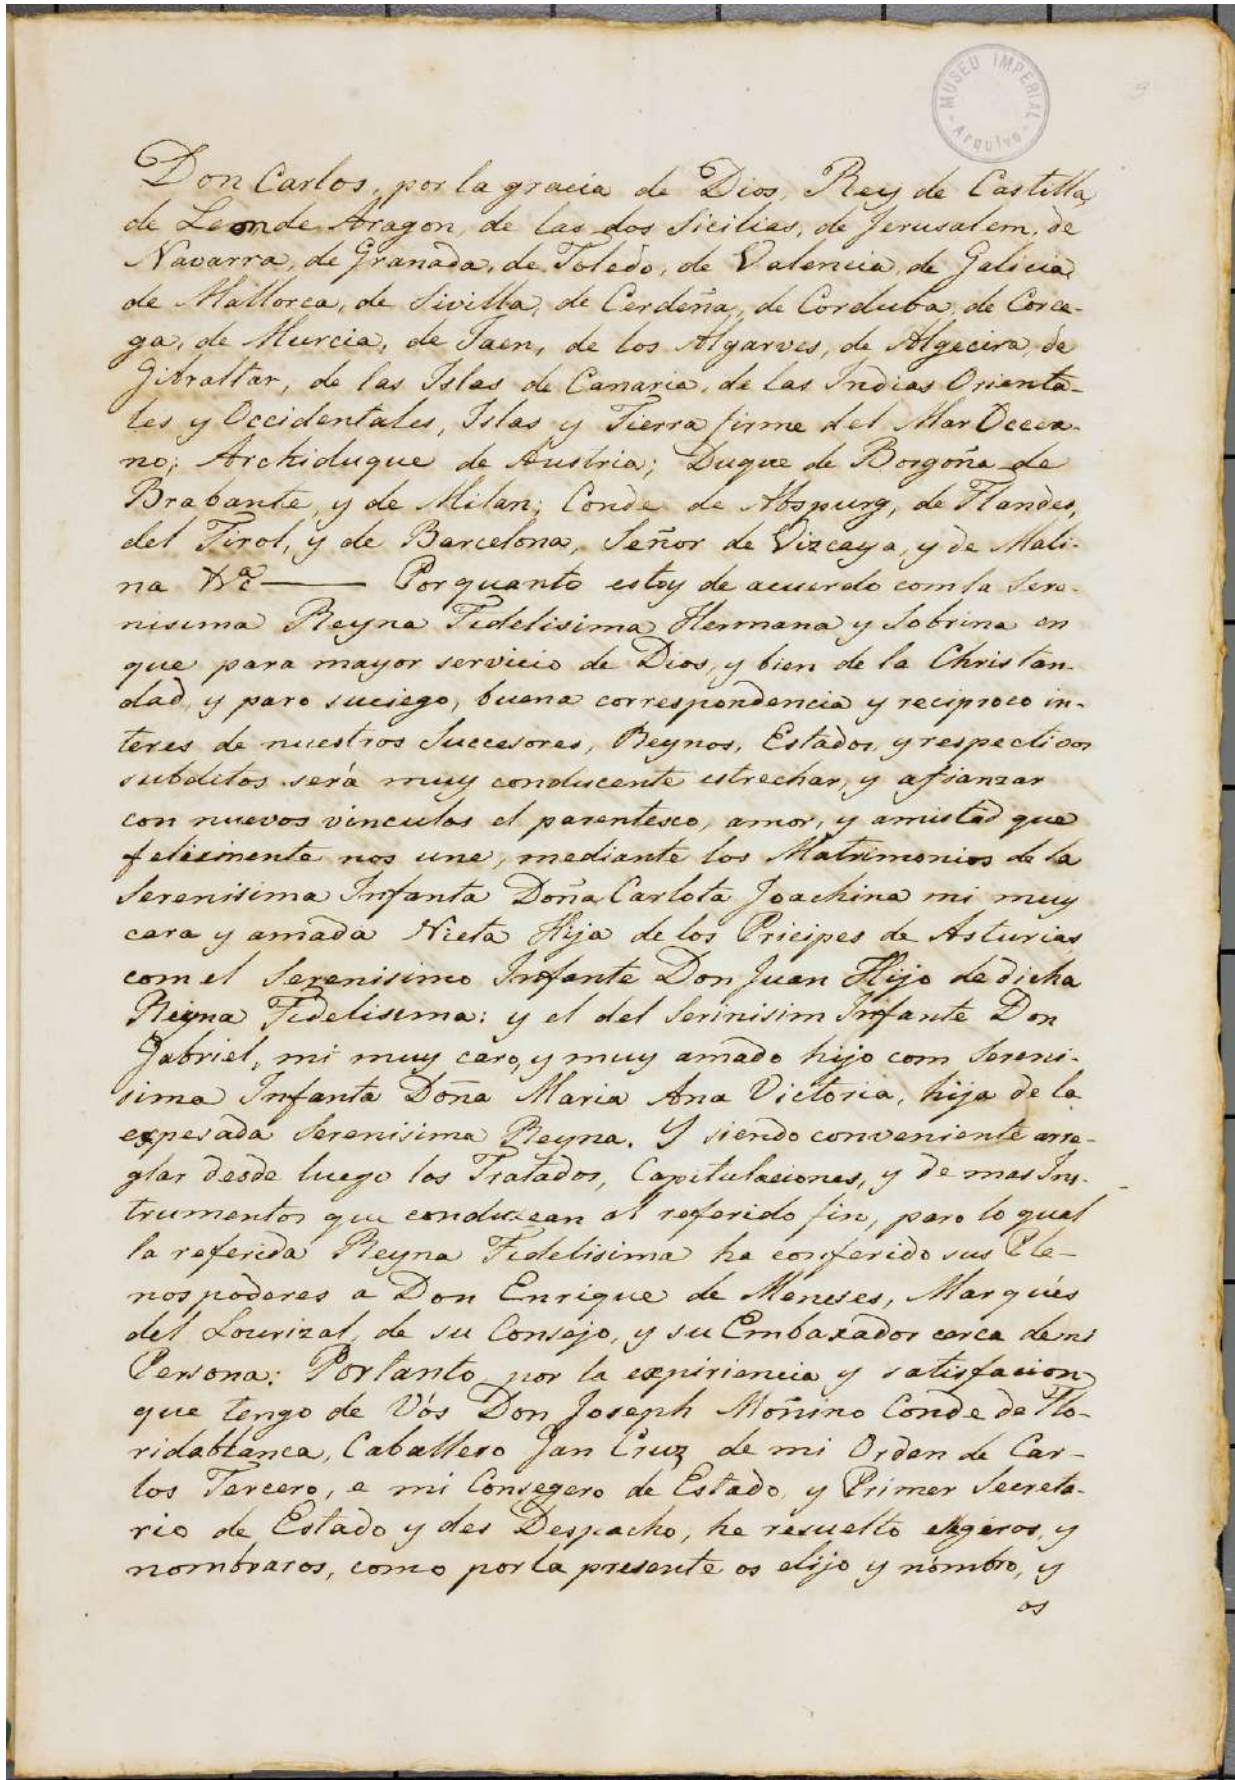 MUSEU IMPERIAL
Arquivo
9
Don Carlos, por la gracia de Dios, Rey de Castilla,
de Leon de Aragon, de las dos Sicilias, de Jerusalem, de
Navarra, de Granada, de Toledo, de Valencia, de Galicia,
de Mallorca, de Sivilla, de Cerdeña, de Corduba, de Corce-
ga, de Murcia, de Jaen, de los Algarves, de Algecira, de
Gibraltar, de las Islas de Canaria, de las Indias Orienta-
les y Occidentales, Islas y Tierra firme del Mar Occea-
no; Archiduque de Austria; Duque de Borgoña de
Brabante, y de Milan; Conde de Abspurg, de Flandes,
del Tirol, y de Barcelona, Señor de Vizcaya, y de Moli-
na &ª — Por quanto estoy de acuerdo com la Sere-
nisima Reyna Fidelisima Hermana y Sobrina en
que para mayor servicio de Dios, y bien de la Christan-
dad, y paro suciego, buena correspondencia y reciproco in-
teres de nuestros Succesores, Reynos, Estados, y respectivos
subditos será muy conducente estrechar, y afianzar
con nuevos vinculos el parentesco, amor, y amistad que
felizmente nos une, mediante los Matrimonios de la
Serenisima Infanta Doña Carlota Joachina mi muy
cara y amada Nieta Hija de los Pricipes de Asturias
com el Serenisimo Infante Don Juan Hijo de dicha
Reyna Fidelisima: y el del Serinisim Infante Don
Gabriel, mi muy caro, y muy amado hijo com Sereni-
sima Infanta Doña Maria Ana Victoria, hija de la
expesada Serenisima Reyna. Y siendo conveniente arre-
glar desde luego los Tratados, Capitulaciones, y de mas Ins-
trumentos que conduzcan al referido fin, paro lo qual
la referida Reyna Fidelisima ha conferido sus Ple-
nos poderes a Don Enrique de Meneses, Marqués
del Lourizal, de su Consejo, y su Embaxador cerca de mi
Persona: Portanto, por la expiriencia y satisfacion
que tengo de Vós Don Joseph Moñino Conde de Flo-
ridablanca, Caballero Jan Cruz de mi Orden de Car-
los Tercero, e mi Consegero de Estado, y Primer Secreta-
rio de Estado y des Despacho, he resuelto elegiros, y
nombraros, como por la presente os elijo y nómbro, y
os